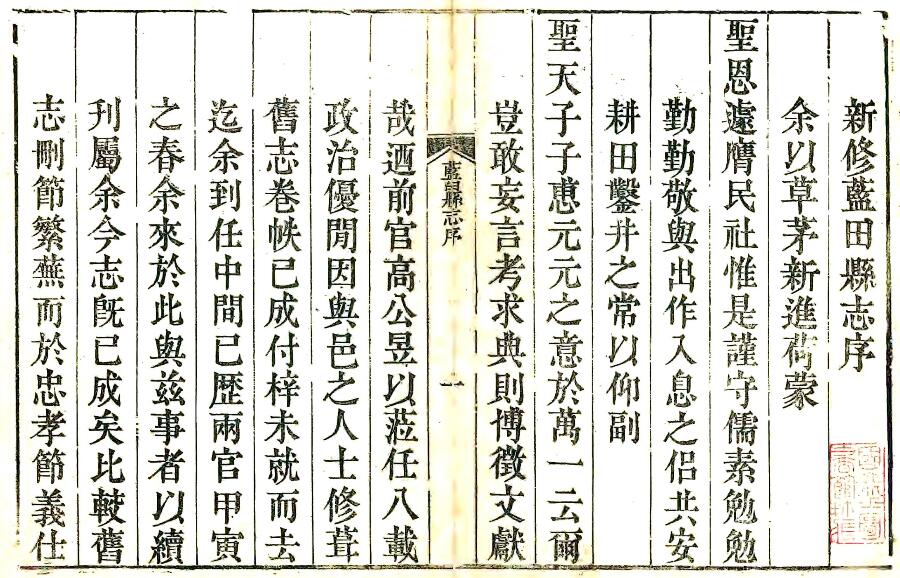 新修藍田縣志序
余以草茅新進荷蒙
聖恩遠膺民社惟是謹守儒素勉勉
勤勤敬與出作入息之侶共安
耕田鑿井之常以仰副
聖天子子惠元元之意於萬一云爾
豈敢妄言考求典則博徵文獻
藍田縣志序
一
哉迺前官高公昱以蒞任八載
政治優閒因與邑之人士修葺
舊志卷帙已成付梓未就而去
迄余到任中間已歷兩官甲寅
之春余來於此與茲事者以續
刋屬余今志既已成矣比較舊
志刪節繁蕪而於忠孝節義仕